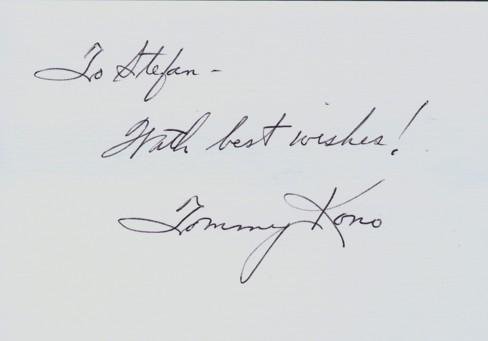 To Stefan -
With best wishes!
Tommy Kono